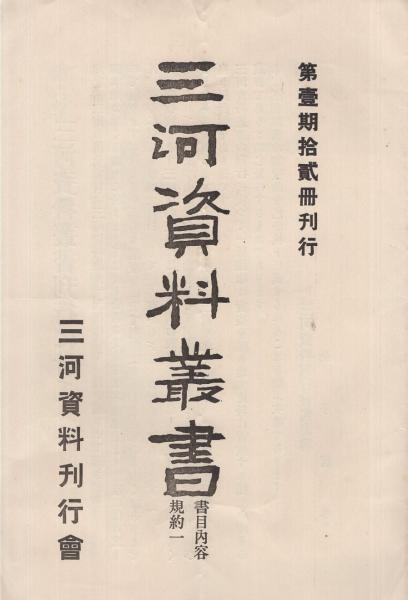 第壹期拾貳冊刊行
三河資料叢書
書目內容
規約一
三河資料刊行會